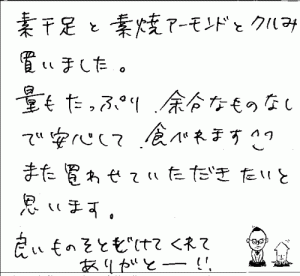 素干足と素焼アーモンドとクルみ
買いました。
量もたっぷり、余分なものなし
で安心して、食べれます^^
また買わせていただきたいと
思います。
良いものをとどけてくれて
ありがとー!!